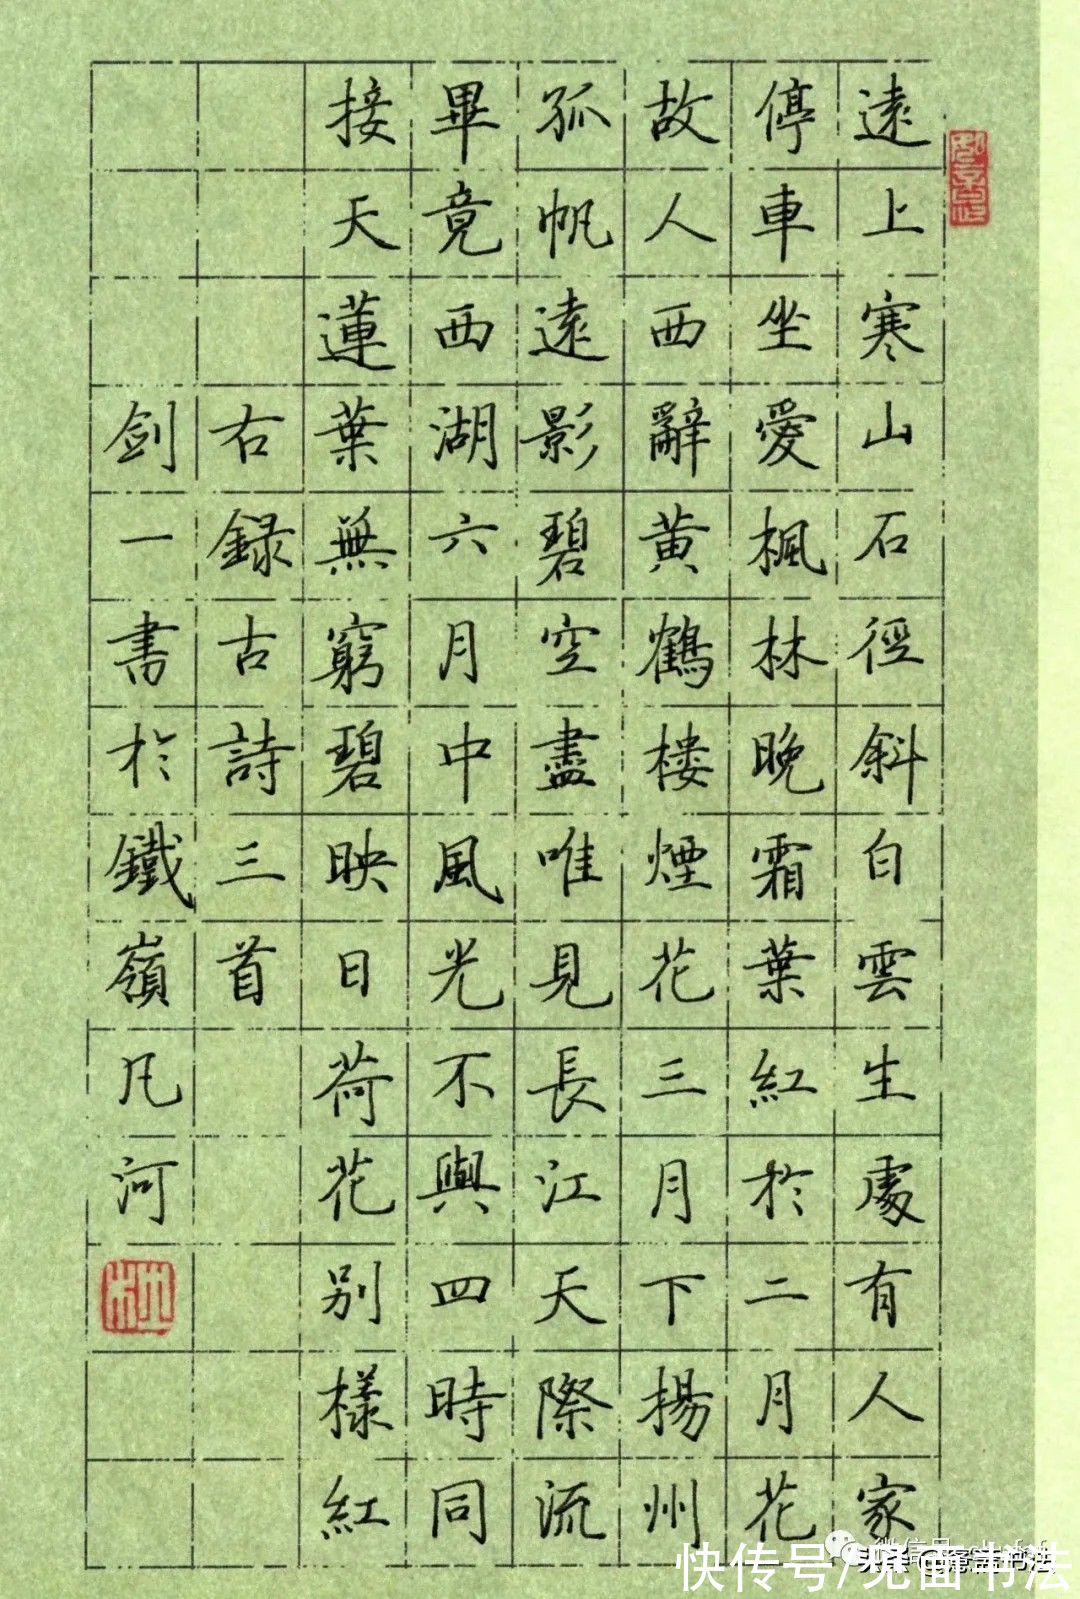 遠上寒山石徑斜白雲生處有人家
停車坐愛楓林晚霜葉紅於二月花
故人西辭黄鶴楼煙花三月下揚州
孤帆遠影碧空盡唯見長江天際流
畢竟西湖六月中風光不與四時同
接天蓮葉無窮碧映日荷花别樣紅
右録古詩三首
剑一書於鐵嶺凡河
快传号/见面书法